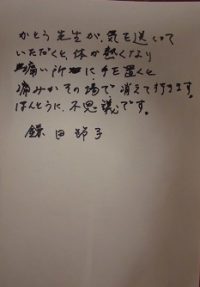 かとう先生が、気を送って
いただくと、体が熱くなり
痛い所に手を置くと
痛みがその場で消えて行きます。
ほんとうに、不思議です。
鎌田